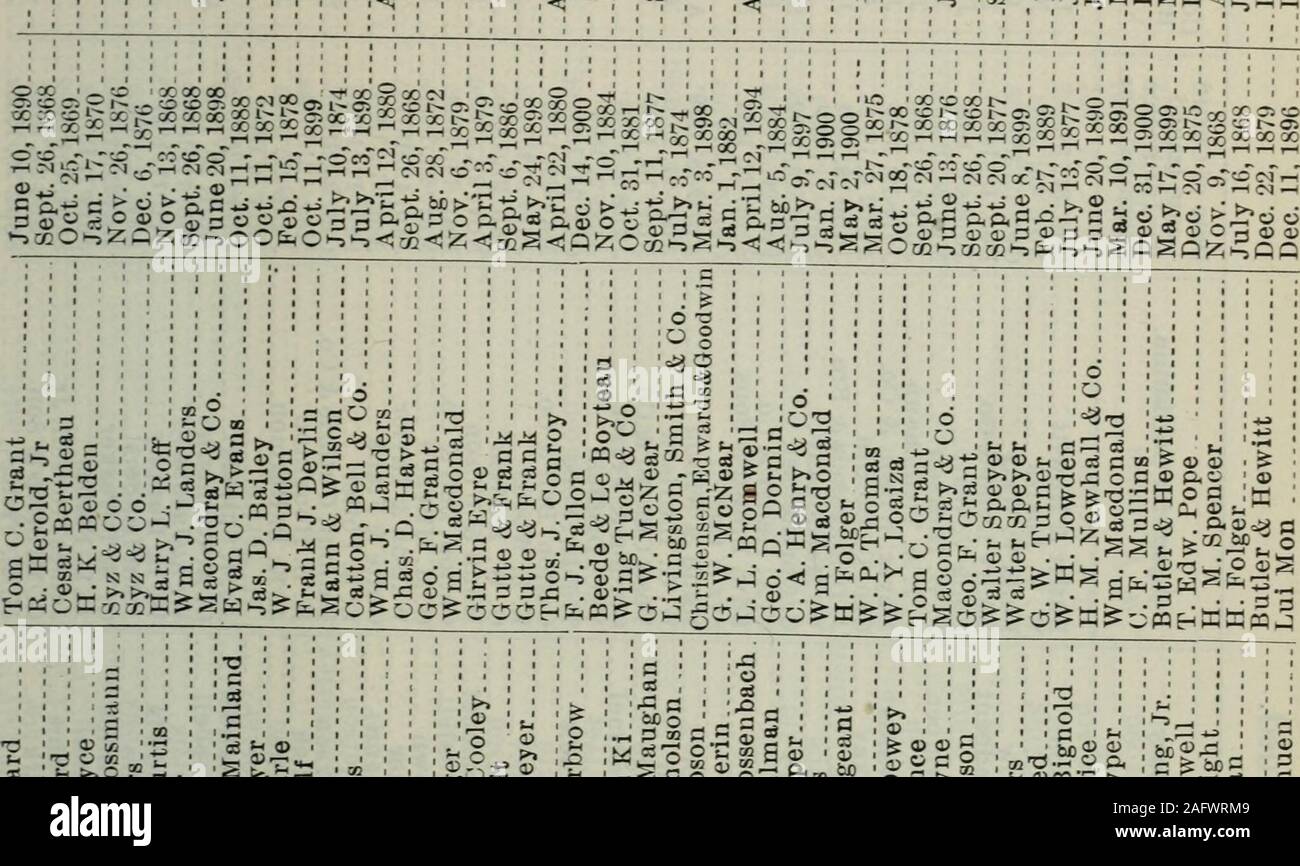 ard Tom C. Grant June 10, 1890
R. Herold, Jr Sept. 26, 1868
rd Cesar Bertheau Oct. 25, 1869
yce H. K. Belden Jan. 17, 1870
ossmann Syz & Co. Nov. 26, 1876
rs Syz & Co. Dec. 6, 1876
urtis Harry L. Roff Nov. 13, 1868
Wm. J. Landers Sept. 26, 1868
Mainland Macondray & Co. June 20, 1898
yer Evan C. Evans Oct. 11, 1888
rle Jas. D. Bailey Oct. 11, 1872
lf W. J. Dutton Feb. 15, 1878
Frank J. Devlin Oct. 11, 1899
s Mann & Wilson July 10, 1874
Catton, Bell & Co. July 13, 1898
Wm. J. Landers April 12, 1880
Chas. D. Haven Sept. 26, 1868
Geo. F. Grant Aug. 28, 1872
yer Wm. Macdonald Nov. 6, 1879
Cooley Girvin Eyre April 3, 1879
t Gutte & Frank Sept. 6, 1886
eyer Gutte & Frank May 24, 1898
Thos. J. Conroy April 22, 1880
rbrow F. J. Fallon Dec. 14, 1900
Beede & Le Boyteau Nov. 10, 1884
Ki Wing Tuck & Co Oct. 31, 1881
Maughan G. W. McNear Sept. 11, 1877
nolson Livingston, Smith & Co. July 3, 1874
oson Christensen, Edwards & Goodwin Mar. 3, 1898
erin G. W. McNear Jan. 1, 1882
ossenbach L. L. Bromwell April 12, 1894
lman Geo. D. Dornin Aug. 5, 1884
per C. A. Henry & Co. July 9, 1897
s Wm. Macdonald Jan. 2, 1900
geant H. Folger May 2, 1900
W. P. Thomas Mar. 27, 1875
Dewey W. Y. Loaiza Oct. 18, 1878
nce Tom C. Grant Sept. 26, 1868
yne Macondray & Co. June 13, 1876
son Geo. F. Grant Sept. 26, 1868
Walter Speyer Sept. 20, 1877
rs Walter Speyer June 8, 1899
ed G. W. Turner Feb. 27, 1889
Bignold W. H. Lowden July 13, 1877
ice H. M. Newhall & Co. June 20, 1890
yper Wm. Macdonald Mar. 10, 1891
C. F. Mullins Dec. 31, 1900
ng, Jr. Butler & Hewitt May 17, 1899
well T. Edw. Pope Dec. 20, 1875
ght H. M. Spencer Nov. 9, 1868
n H. Folger July 16, 1868
Butler & Hewitt Dec. 22, 1879
nuen Lui Mon Dec. 11, 1896
alamy
Image ID: 2AFWRM9
www.alamy.com